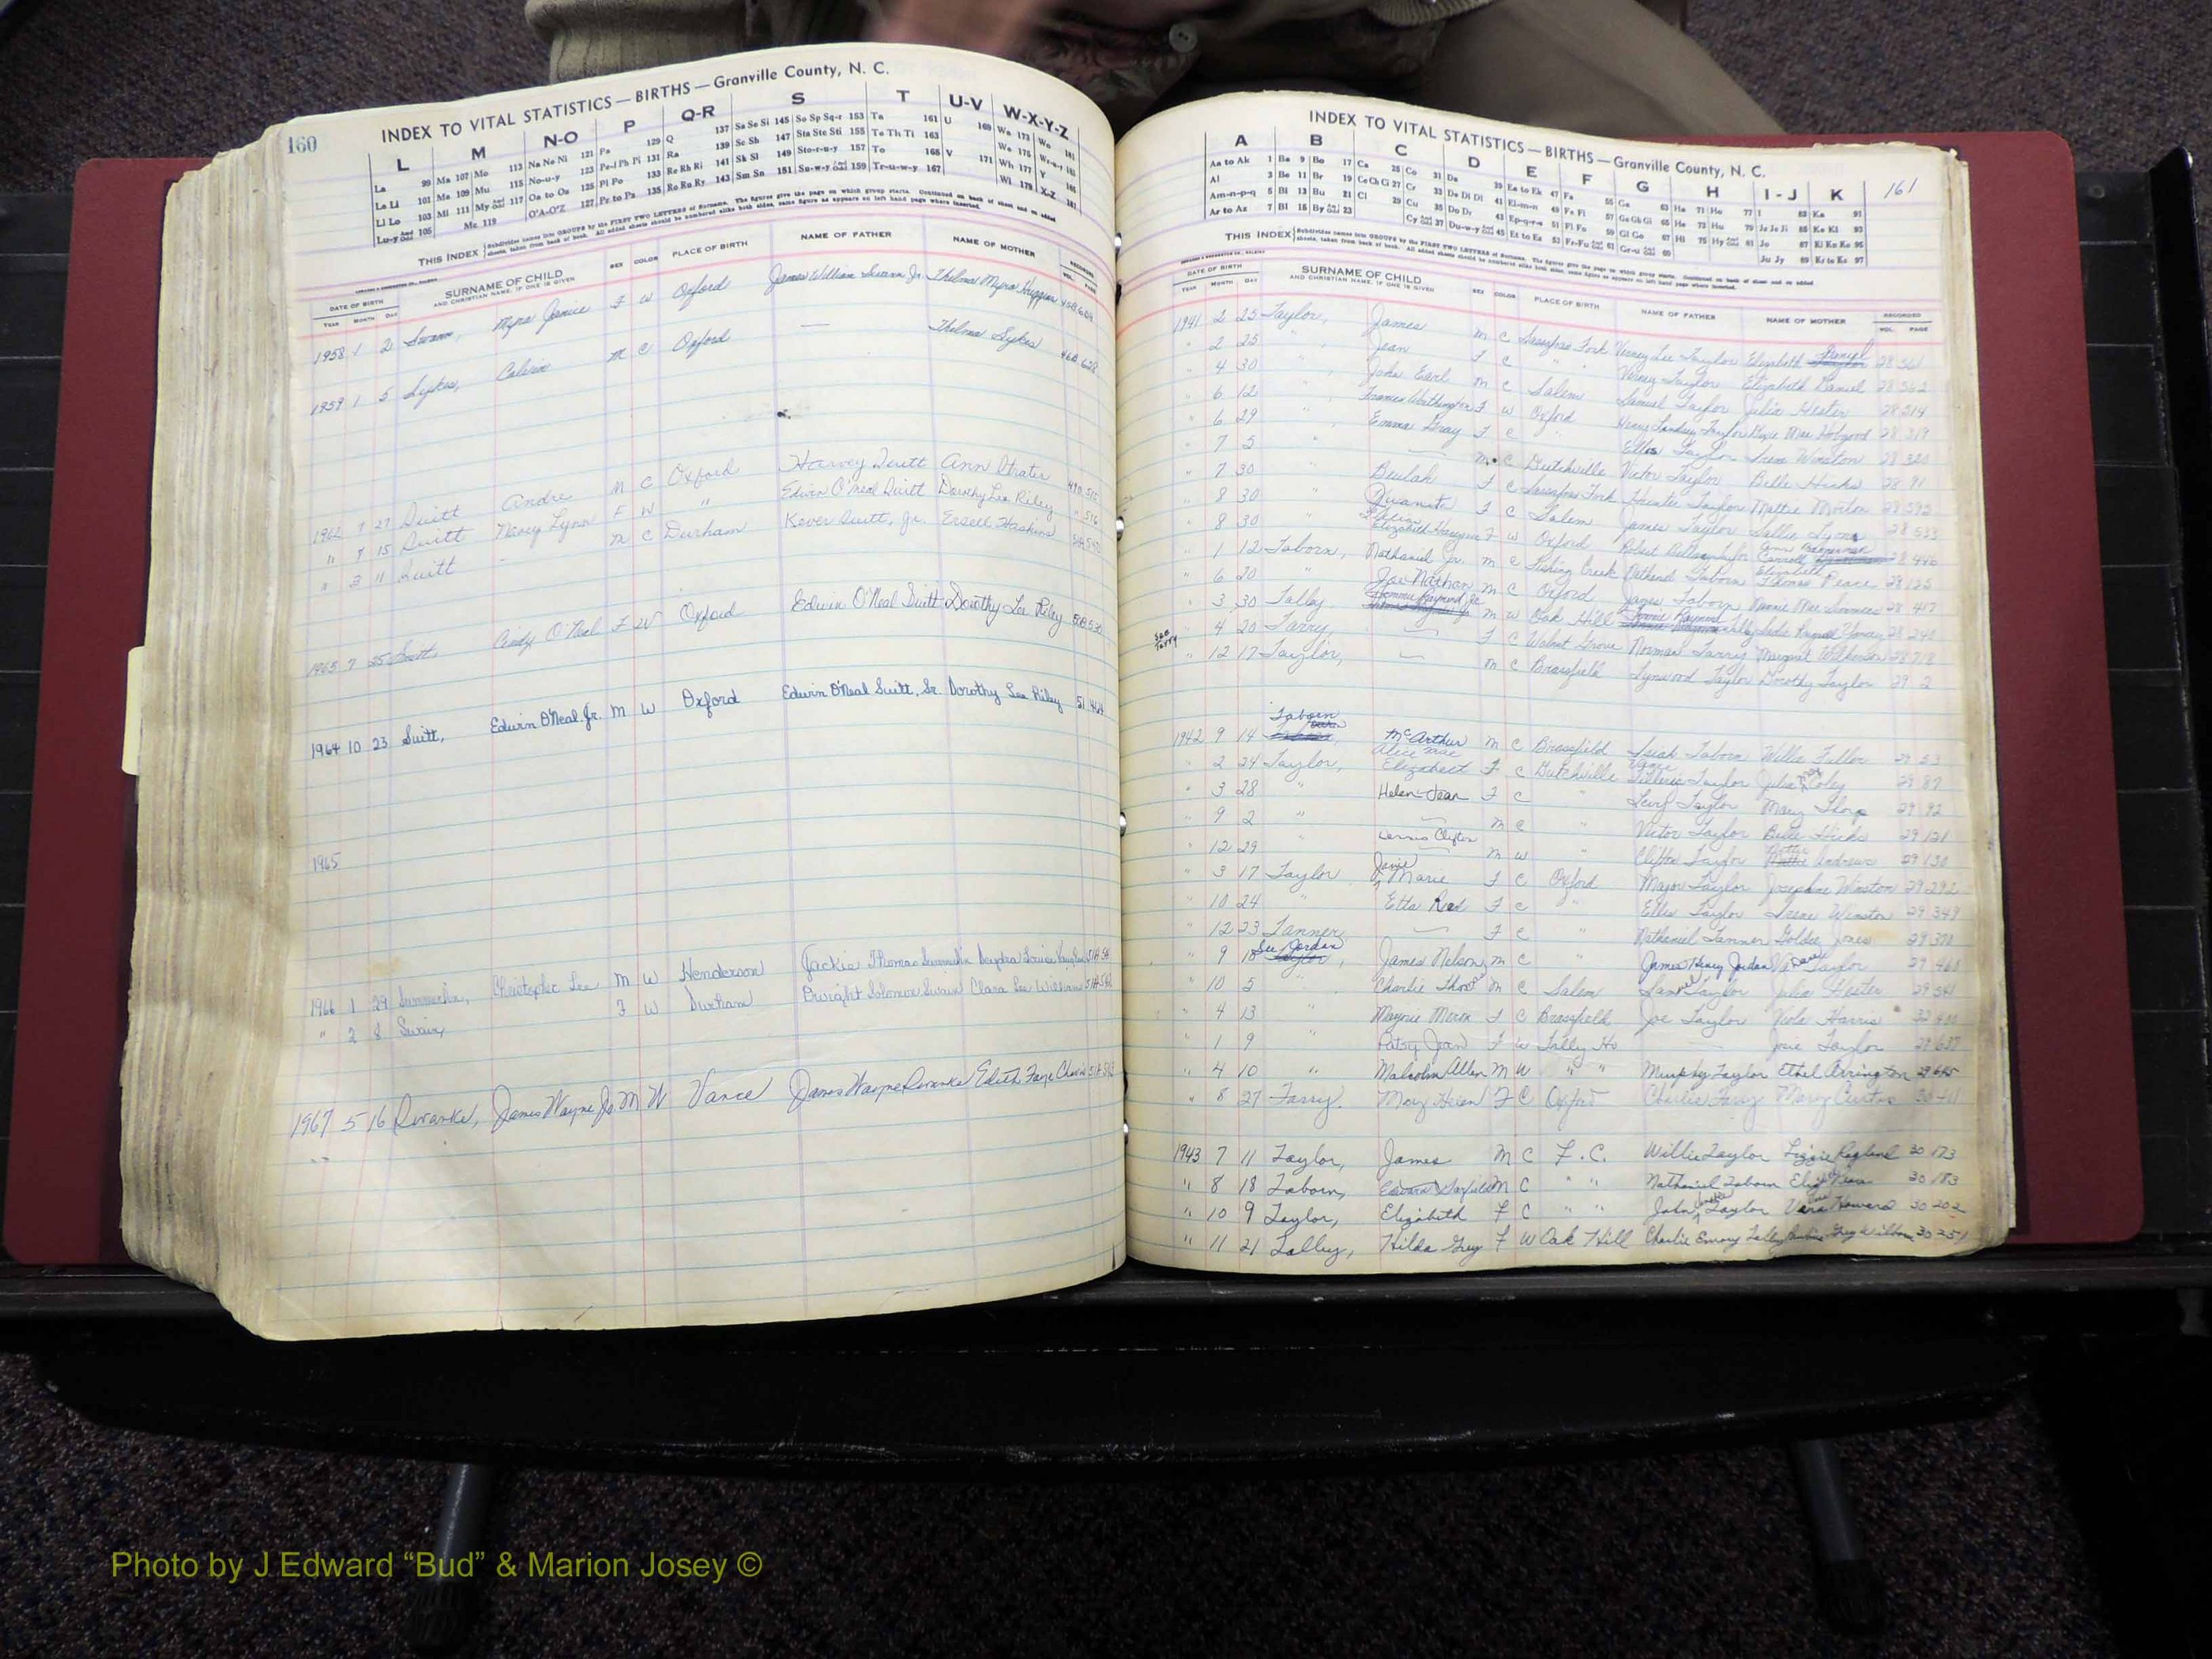 160
INDEX TO VITAL STATISTICS — BIRTHS — Granville County, N. C.
L M N-O P Q-R S T U-V W-X-Y-Z
La 99 Ma 107 Mo 113 Na Ne Ni 121 Pa 129 Q 137 Sa Se Si 145 So Sp Sq-r 153 Ta 161 U 169 Wa 173 Wo 181
Le Li 101 Me 109 Mu 115 No-u-y 123 Pe-f Ph Pi 131 Ra 139 Sc Sh 147 Sta Ste Sti 155 Te Th Ti 163 We 175
Ll Lo 103 Mi 111 My 117 Oa to Oz 125 Pl Po 133 Re Rh Ri 141 Sk Sl 149 Sto-r-u-y 157 To 165 V 171 Wh 177 Y
Lu-y 105 Mc 119 O'A-O'Z 127 Pr to Pz 135 Ro Ru Ry 143 Sm Sn 151 Su-w-y 159 Tr-u-w-y 167 Wi 179 X-Z
THIS INDEX Subdivides names into GROUPS by the FIRST TWO LETTERS of Surname. The figures give the page on which group starts. Continued on back of sheet and on added
sheets, taken from back of book. All added sheets should be numbered alike both sides, same figure as appears on left hand page where inserted.
DATE OF BIRTH SURNAME OF CHILD SEX COLOR PLACE OF BIRTH NAME OF FATHER NAME OF MOTHER RECORDED
YEAR MONTH DAY AND CHRISTIAN NAME, IF ONE IS GIVEN VOL. PAGE
1958 1 2 Swann, Myra Janice F W Oxford James William Swann Jr. Thelma Myra Huggins 45B 604
1959 1 5 Sykes, Calvin M C Oxford — Thelma Sykes 46B 628
1962 7 27 Suitt Andre M C Oxford Harvey Suitt Ann Strater
" 15 Suitt Nancy Lynn F W " Edwin O'Neal Suitt Dorothy Lee Riley 516
" 3 11 Suitt - M C Durham Kever Suitt, Jr. Ersell Haskins
1963 7 25 Suitt, Cindy O'Neal F W Oxford Edwin O'Neal Suitt Dorothy Lee Riley
1964 10 23 Suitt, Edwin O'Neal Jr. M W Oxford Edwin O'Neal Suitt, Sr. Dorothy Lee Riley 51 464
1965
1966 1 29 Summerlin, Christopher Lee M W Henderson Jackie Thomas Summerlin Louise
" 2 8 Swain, F W Durham Dwight Solomon Swain Clara Lee Williams
1967 5 16 James Wayne Jr. M W Vance James Wayne Edith Faye
161
INDEX TO VITAL STATISTICS — BIRTHS — Granville County, N. C.
A B C D E F G H I-J K
Aa to Ak 1 Ba 9 Bo 17 Ca 25 Co 31 Da 39 Ea to Ek 47 Fa 55 Ga 63 Ha 71 Ho 77 I 83 Ka 91
Al 3 Be 11 Br 19 Ce Ch Ci 27 Cr 33 De Di Dl 41 El-m-n 49 Fe Fi 57 Ge Gh Gi 65 He 73 Hu 79 Ja Je Ji 85 Ke Kl 93
Am-n-p-q 5 Bi 13 Bu 21 Cl 29 Cu 35 Do Dr 43 Ep-q-r-s 51 Fl Fo 59 Gl Go 67 Hi 75 Hy 81 Jo 87 Ki Kn Ko 95
Ar to Az 7 Bl 15 By 23 Cy 37 Du-w-y 45 Et to Ez 53 Fr-Fu 61 Gr-u 69 Ju Jy 89 Kr to Kz 97
THIS INDEX Subdivides names into GROUPS by the FIRST TWO LETTERS of Surname. The figures give the page on which group starts. Continued on back of sheet and on added
sheets, taken from back of book. All added sheets should be numbered alike both sides, same figure as appears on left hand page where inserted.
DATE OF BIRTH SURNAME OF CHILD SEX COLOR PLACE OF BIRTH NAME OF FATHER NAME OF MOTHER RECORDED
YEAR MONTH DAY AND CHRISTIAN NAME, IF ONE IS GIVEN VOL. PAGE
1941 2 25 Taylor, James M C Sassafras Fork Verney Lee Taylor Elizabeth Daniel 28 561
" 2 25 " Jean F C " Verney Taylor Elizabeth Daniel 28 562
" 4 30 " John Earl M C Salem Samuel Taylor Julia Hester 28 514
" 6 12 " Frances Worthington F W Oxford Henry Lindsey Taylor Mae Hobgood 28 319
" 6 29 " Emma Gray F C " Ellis Taylor Irene Winston 28 320
" 7 5 " — M C Dutchville Victor Taylor Belle Hicks 28 91
" 7 30 " Beulah F C Sassafras Fork Hunter Taylor Mattie Morton 28 595
" 8 30 " Juanita F C Salem James Taylor Sallie Lyons 28 533
" 8 30 " Elizabeth F W Oxford Robert Taylor Carroll 28 446
" 1 12 Taborn, Nathaniel Jr. M C Fishing Creek Nathaniel Taborn Elizabeth Peace 28 125
" 6 20 " Joe Nathan M C Oxford James Taborn Nannie Mae 28 417
" 3 30 Talley Raymond Jr. M W Oak Hill Raymond Talley 28 240
See Tarry
" 4 20 Tarry, — F C Walnut Grove Norman Tarry Margaret Wilkerson 28 718
" 12 17 Taylor, — M C Brassfield Lynwood Taylor Dorothy Taylor 29 2
1942 9 14 Taborn McArthur M C Brassfield Isiah Taborn Willie Fuller 29 53
" 2 24 Taylor, Alice Mae Elizabeth F C Dutchville Taylor Julia Coley 29 87
" 3 28 " Helen Jean F C " Levy Taylor Mary Thorp 29 92
" 9 2 " — M C " Victor Taylor Belle Hicks 29 121
" 12 29 " Clifton M W " Clifton Taylor Andrews 29 130
" 3 17 Taylor Janie Marie F C Oxford Major Taylor Josephine Winston 29 292
" 10 24 " Etta Reed F C " Ellis Taylor Irene Winston 29 349
" 12 23 Tanner — F C " Nathaniel Tanner Goldie Jones 29 370
" 9 18 See Jordan James Nelson M C " James Henry Jordan Taylor 29 460
" 10 5 " Charlie M C Salem Sam Taylor Julia Hester 29 541
" 4 13 " F C Brassfield Joe Taylor Viola Harris
" 1 9 " Patsy Jean F W Tally Ho — Josie Taylor 29 637
" 4 10 " Malcolm Allen M W " " Murphy Taylor Ethel Arrington 29 645
" 8 27 Mary F C Oxford Charlie Mary Curtis
1943 7 11 Taylor, James M C F. C. Willie Taylor Lizzie Ragland 30 173
" 8 18 Taborn, Edward Garfield M C " " Nathaniel Taborn 30 183
" 10 9 Taylor, Elizabeth F C " " John Taylor Howard 30 202
" 11 21 Talley, Hilda Grey F W Oak Hill Charlie Emory Talley 30 251
Photo by J Edward “Bud” & Marion Josey ©